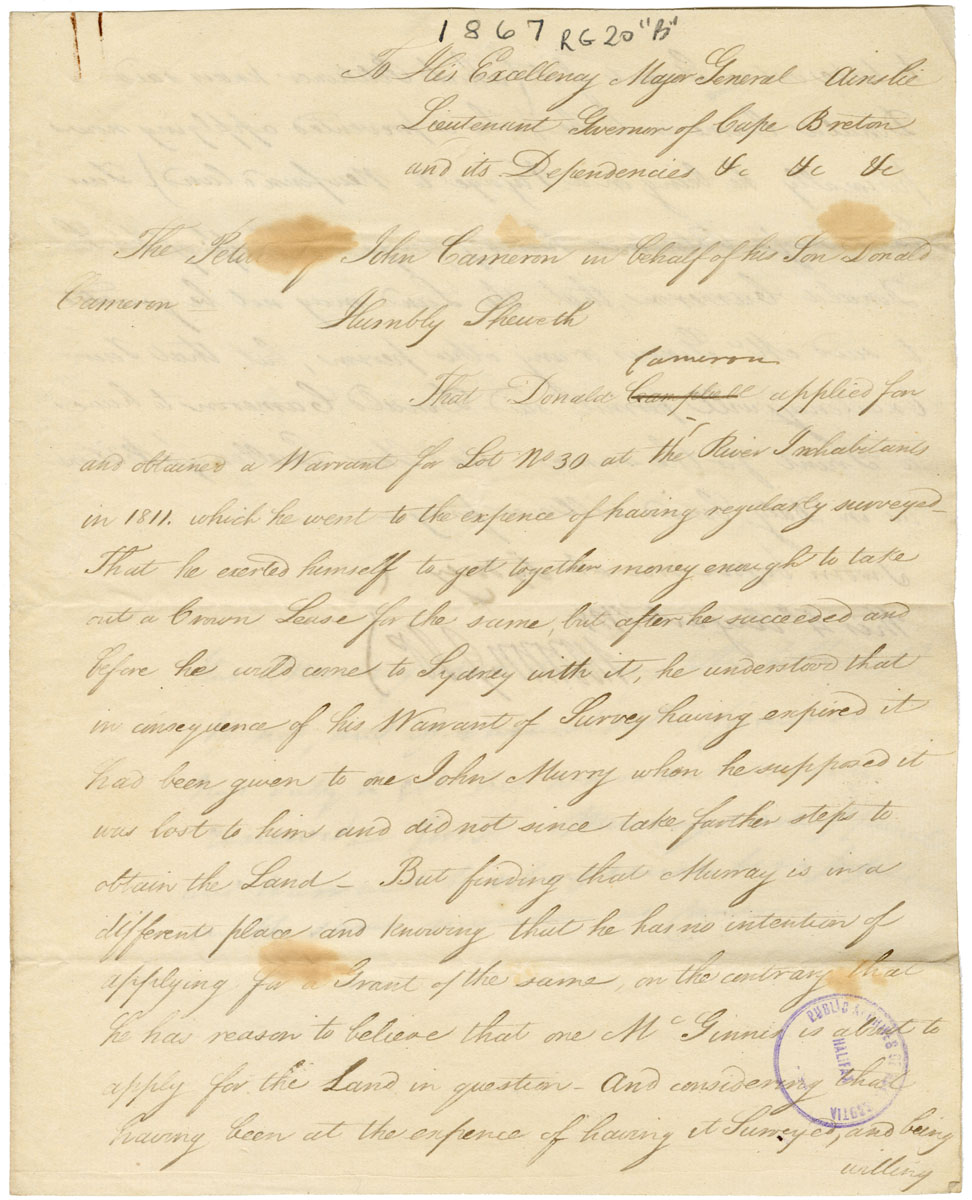 1867 RG 20 "B"
To His Excellency Major General Ainslie
Lieutenant Governor of Cape Breton
and its Dependencies &c &c &c
The Petition of John Cameron in behalf of his Son Donald
Cameron
Humbly Sheweth
Cameron
That Donald Campbell applied for
and obtained a Warrant for Lot No 30 at the River Inhabitants
in 1811. which he went to the expence of having regularly surveyed_
That he exerted himself to get together money enough to take
out a Crown Lease for the same, but after he succeeded and
before he could come to Sydney with it, he understood that
in consequence of his Warrant of Survey having expired it
had been given to one John Murry when he supposed it
was lost to him and did not since take farther steps to
obtain the Land _ But finding that Murray is in a
different place and knowing that he has no intention of
applying for a Grant of the same, on the contrary that
he has reason to believe that one Mc Ginnis is about to
apply for the Land in question - And considering that
having been at the expence of having it Surveyed, and being
willing
PUBLIC ARCHIVES OF NOVA SCOTIA
HALIFAX